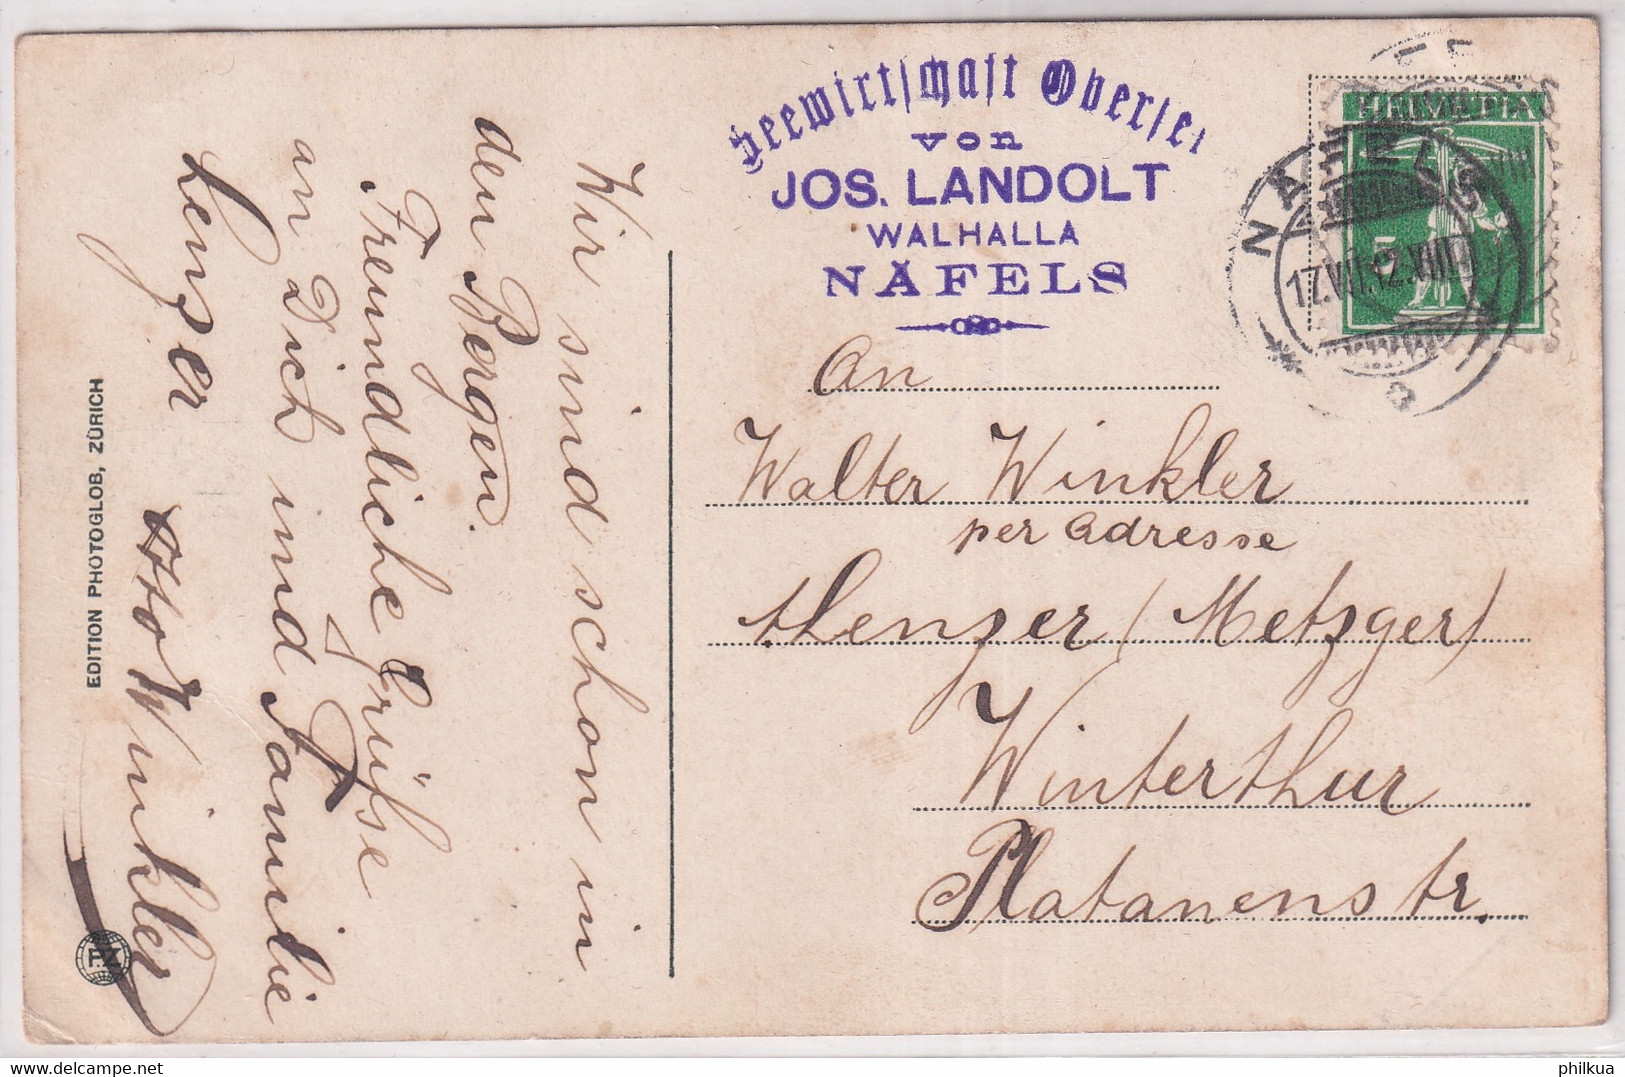 Seewirtschaft Obersee
von
JOS. LANDOLT
WALHALLA
NÄFELS
HELVETIA
5
NÄFELS
17.VII.12.VIII
An
Walter Winkler
per Adresse
Lenzer (Metzger)
Winterthur
Platanenstr.
Wir sind schon in
den Bergen.
Freundliche Grüsse
an Dich und Familie
Lenzer
Otto Winkler
EDITION PHOTOGLOB, ZÜRICH
PZ
philkua
philkua.delcampe.net